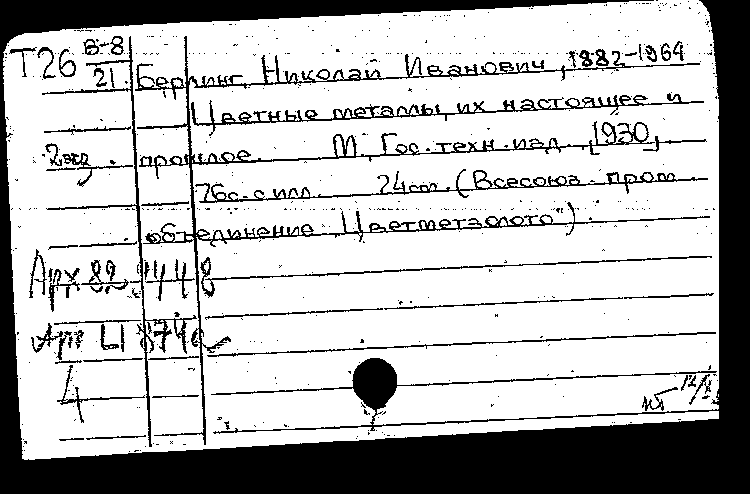 Т26 В-8/21 Берлинг, Николай Иванович, 1882-1964
Цветные металлы, их настоящее и
2экз. прошлое. М., Гос. техн. изд., [1930].
76с. с илл. 24см. (Всесоюз. пром.
объединение "Цветметзолото").
Арх 82.
Арх Ц 874а
4